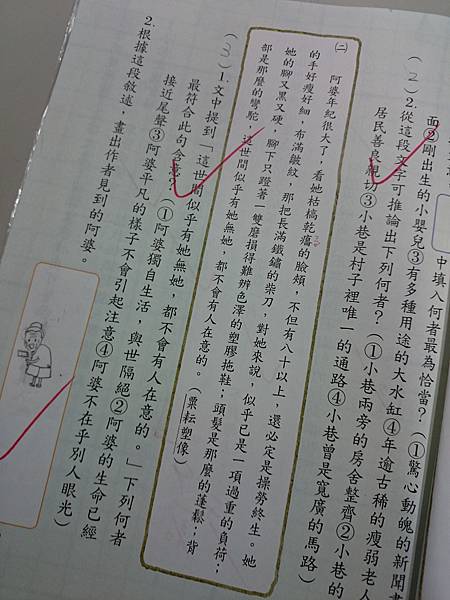 面②剛出生的小嬰兒③有多種用途的大水缸④年逾古稀的瘦弱老人
中填入何者最為恰當？（①驚心動魄的新聞畫
（2）2.從這段文字可推論出下列何者？（①小巷兩旁的房舍整齊②小巷的
居民善良親切③小巷是村子裡唯一的通路④小巷曾是寬廣的馬路）
（二）
阿婆年紀很大了，看她枯槁乾癟的臉頰，不但有八十以上，還必定是操勞終生。她
的手好瘦好細，布滿皺紋，那把長滿鐵鏽的柴刀，對她來說，似乎已是一項過重的負荷；
她的腳又黑又硬，腳下只蹬著一雙磨損得難辨色澤的塑膠拖鞋；頭髮是那麼的蓬鬆，背
部是那麼的彎駝，這世間似乎有她無她，都不會有人在意的。（栗耘塑像）
（3）1.文中提到「這世間似乎有她無她，都不會有人在意的。」下列何者
最符合此句含意？（①阿婆獨自生活，與世隔絕②阿婆的生命已經
接近尾聲③阿婆平凡的樣子不會引起注意④阿婆不在乎別人眼光）
2.根據這段敘述，畫出作者見到的阿婆。